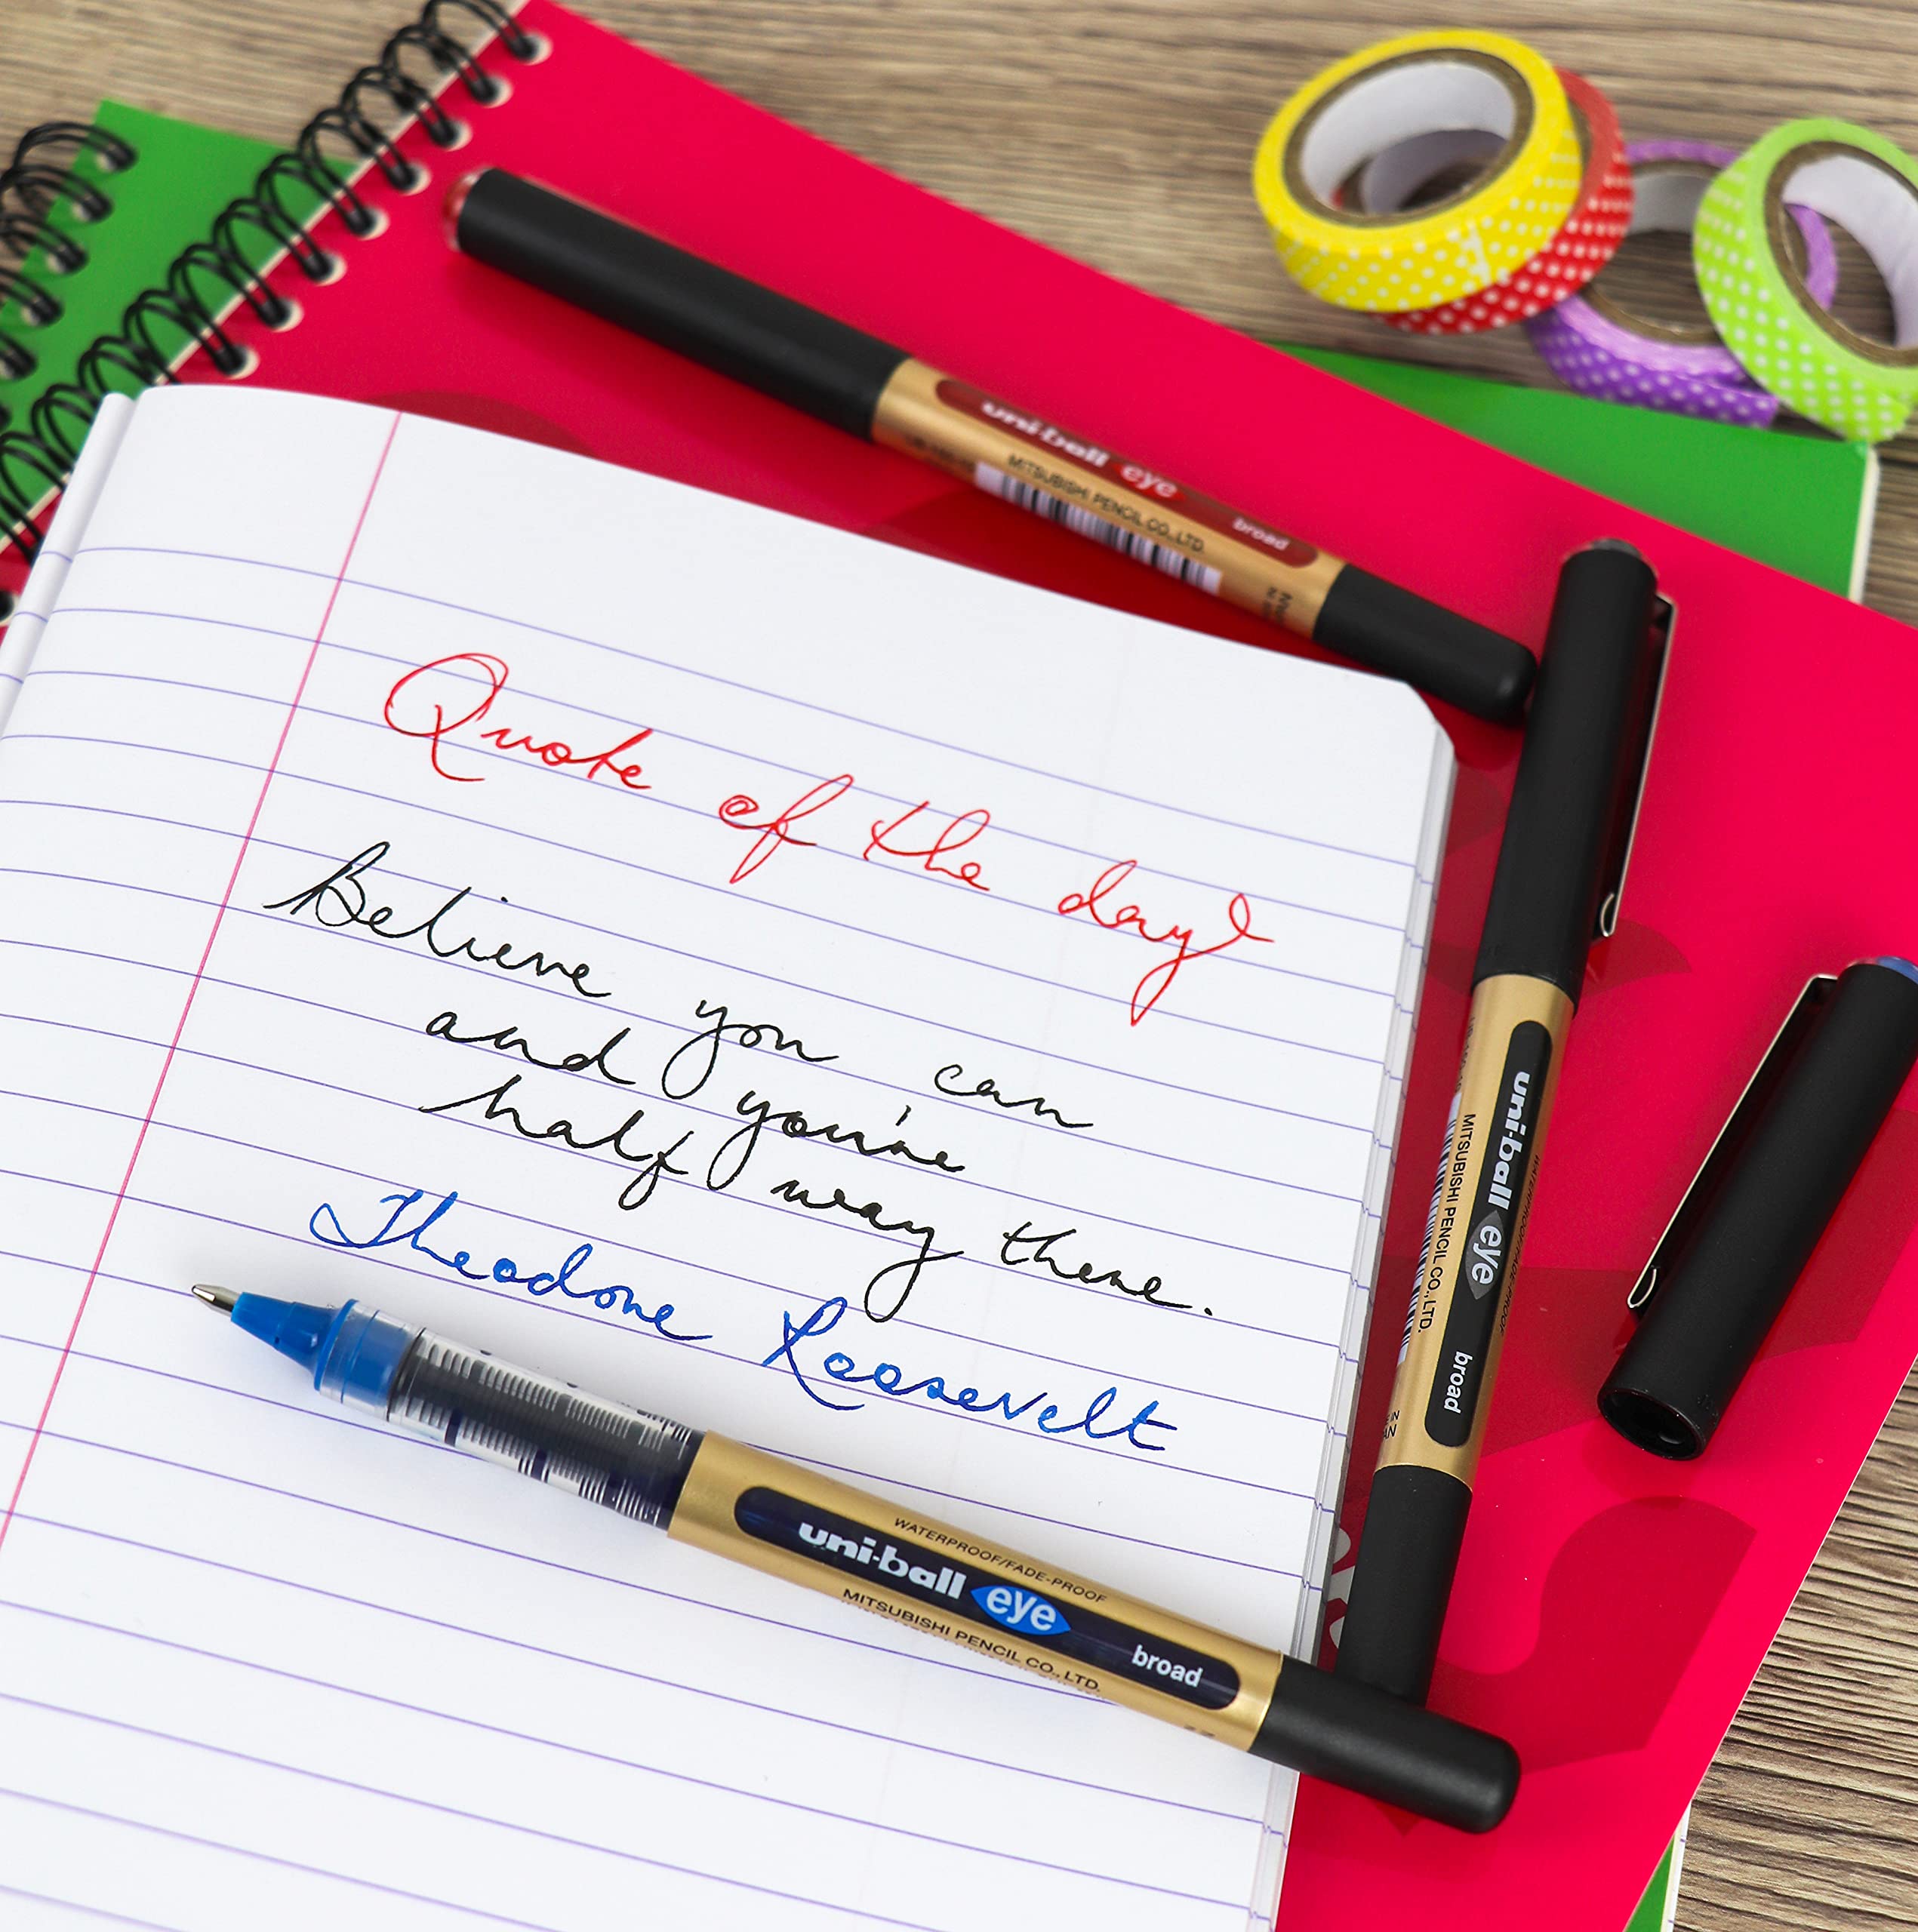 uni-ball eye broad
MITSUBISHI PENCIL CO., LTD.
Quote of the day
Believe you can
and you're
half way there.
Theodore Roosevelt
uni-ball eye broad
MITSUBISHI PENCIL CO., LTD.
WATERPROOF/FADE-PROOF
WATERPROOF/FADE-PROOF
uni-ball eye broad
MITSUBISHI PENCIL CO., LTD.